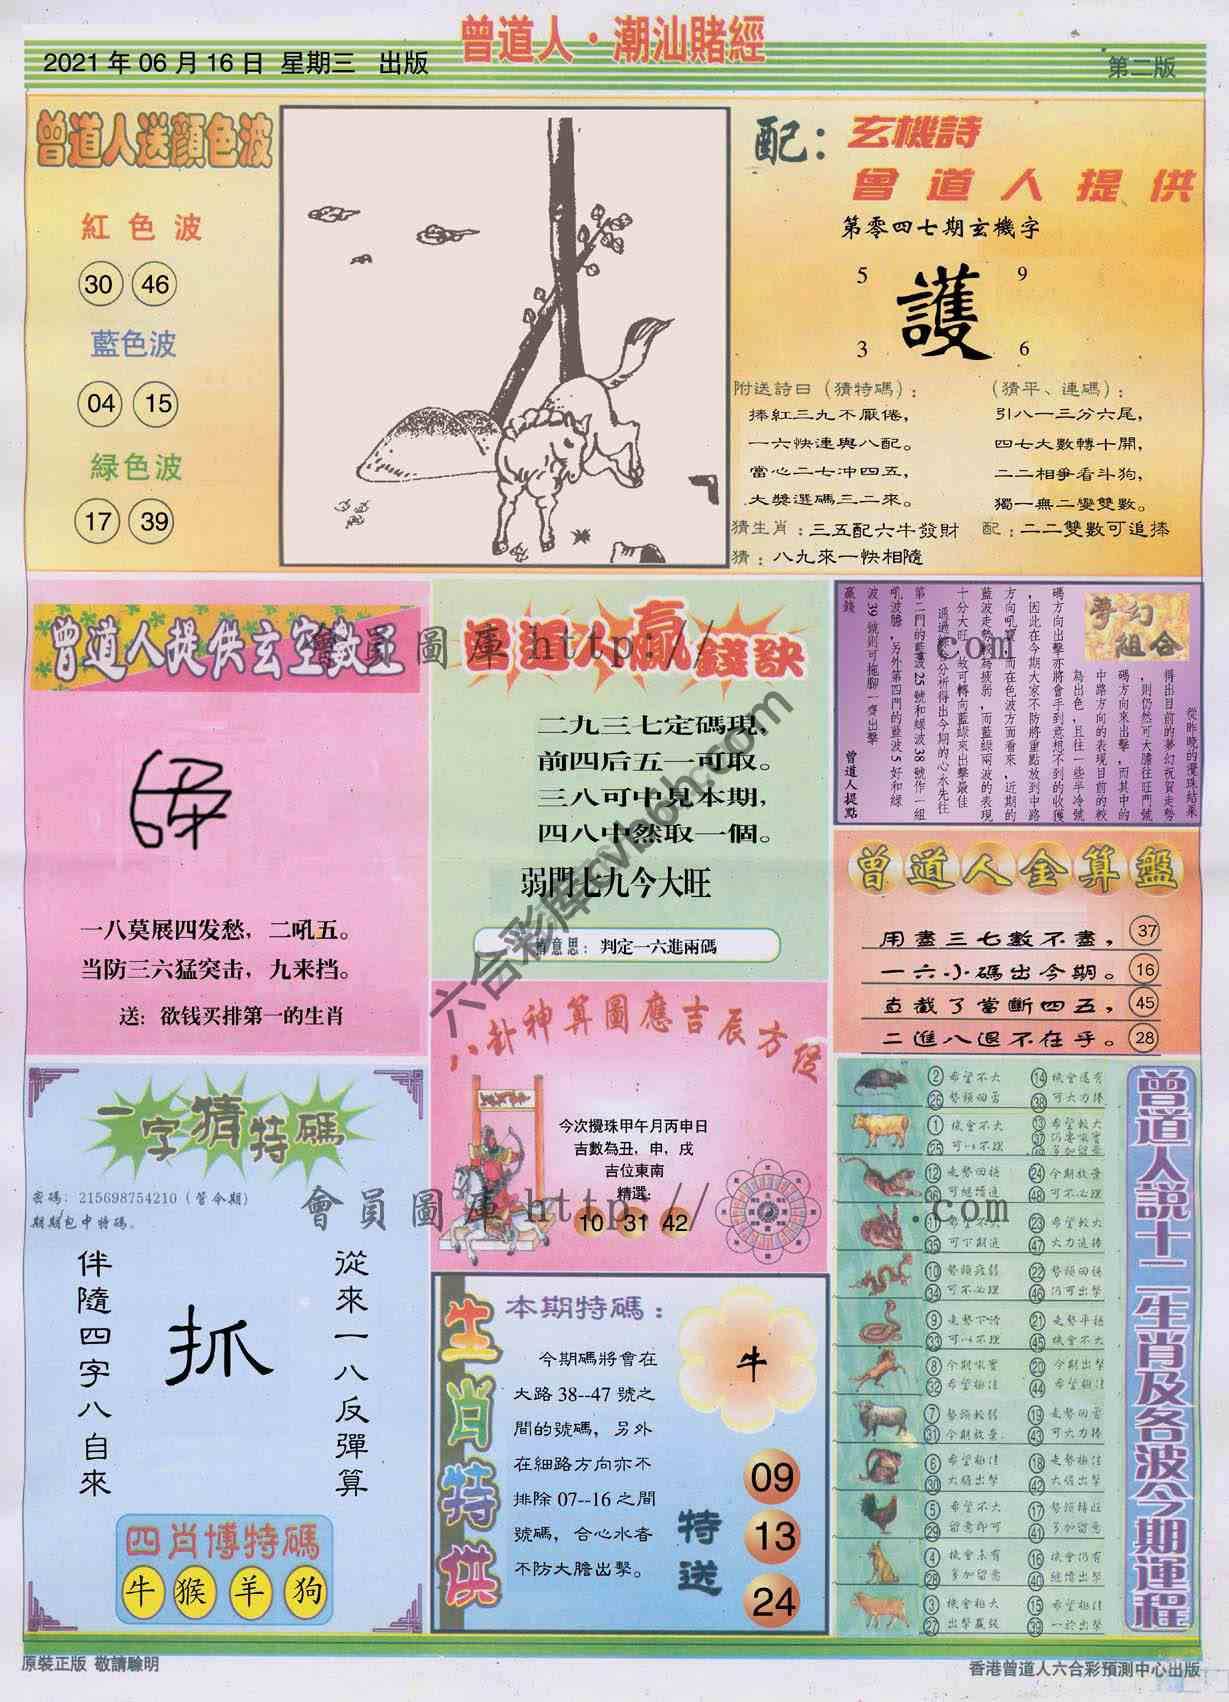 曾道人·潮汕賭經
2021 年 06 月 16 日 星期三 出版
第二版
曾道人送顔色波
紅色波
30 46
藍色波
04 15
緑色波
17 39
配：玄機詩
曾道人提供
第零四七期玄機字
5 9
護
3 6
附送詩曰（猜特碼）：
捧紅三九不厭倦，
一六快連與八配。
當心二七沖四五，
大獎選碼三二來。
（猜平、連碼）：
引八一三分六尾，
四七大數轉十開，
二二相爭看斗狗，
獨一無二變雙數。
猜生肖：三五配六牛發財
配：二二雙數可追捧
猜：八九來一快相隨
曾道人提供玄空數王
一八莫展四发愁，二吼五。
当防三六猛突击，九来挡。
送：欲钱买排第一的生肖
曾道人贏錢訣
二九三七定碼現，
前四后五一可取。
三八可中見本期，
四八中然取一個。
弱門七九今大旺
意思：判定一六進兩碼
夢幻組合
從昨晚的攪珠結果
得出目前的夢幻祝賀走勢
，則仍然可大膽往旺門號
碼方向來出擊，而其中的
中路方向的表現目前的較
為出色，且往一些半冷號
碼方向出擊亦將會手到意想不到的收獲
，因此在今期大家不防將重點放到中路
方向吼實，而在色波方面看來，近期的
藍波走勢較為疲弱，而藍綠兩波的表現
十分大旺，故可轉向藍綠來出擊最佳
通過綜合分析得出今期的心水先往
第二門的藍波25號和綠波38號作一組
吼波膽，另外第四門的藍波5好和綠
波39號則可拖腳一齊出擊
贏錢
曾道人提點
曾道人金算盤
用盡三七數不盡， 37
一六小碼出今期。 16
直截了當斷四五， 45
二進八退不在乎。 28
八卦神算圖應吉辰方位
今次攪珠甲午月丙申日
吉數為丑，申，戌
吉位東南
精選:
10 31 42
一字猜特碼
密碼：215698754210（管令期）
期期包中特碼。
從來一八反彈算
抓
伴隨四字八自來
四肖博特碼
牛 猴 羊 狗
生肖特供
本期特碼：
今期碼將會在
大路 38--47 號之
間的號碼，另外
在細路方向亦不
排除 07--16 之間
號碼，合心水者
不防大膽出擊。
牛
特送
09
13
24
曾道人説十二生肖及各波今期運程
2 希望不大 14 機會還有
26 勢頭回勇 38 可大力捧
1 機會不大 13 希望較大
25 可以不理 37 仍要吼實
49 多加留意
12 走勢回穩 24 今期放棄
36 可繼續追 48 可不必理
11 希望不大 23 希望較大
35 可下期追 47 大力追捧
10 勢頭疲弱 22 勢頭回穩
34 可不必理 46 仍可出擊
9 走勢下滑 21 走勢平穩
33 可以不理 45 機會不大
8 今期吼實 20 今期出擊
32 希望極佳 44 希望極佳
7 勢頭較弱 19 走勢回雷
31 今期放棄 43 可大力捧
6 希望極佳 18 走勢極佳
30 大膽出擊 42 大膽出擊
5 希望不大 17 勢頭轉旺
29 留意即可 41 多加留意
4 機會未有 16 機會仍有
28 多加留意 40 繼續出擊
3 機會極大 15 希望極佳
27 出擊贏錢 39 一於出擊
會員圖庫 http:// com
六合彩库cvlo6h.com
會員圖庫 http:// .com
原裝正版 敬請驗明
香港曾道人六合彩預測中心出版